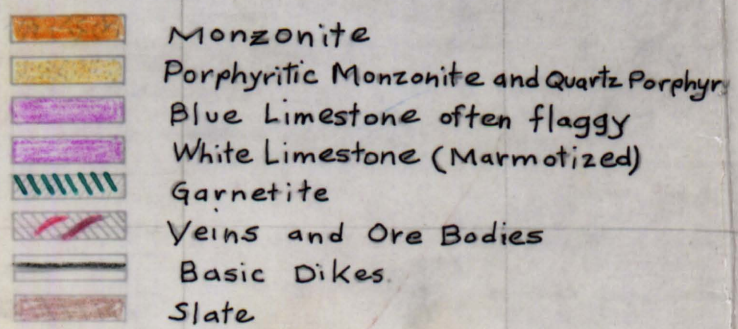 Monzonite
Porphyritic Monzonite and Quartz Porphyr
Blue Limestone often flaggy
White Limestone (Marmotized)
Garnetite
Veins and Ore Bodies
Basic Dikes.
Slate